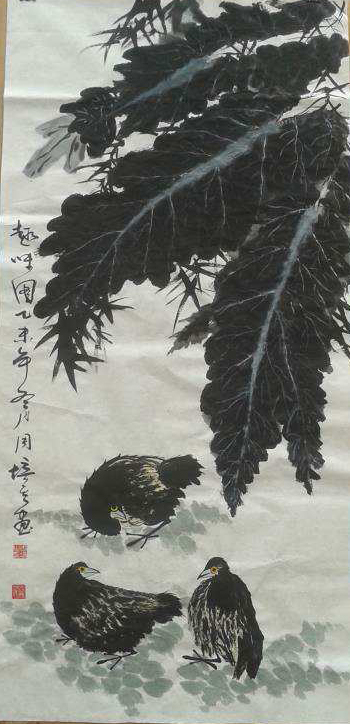 趣味图乙未年冬月周培言画